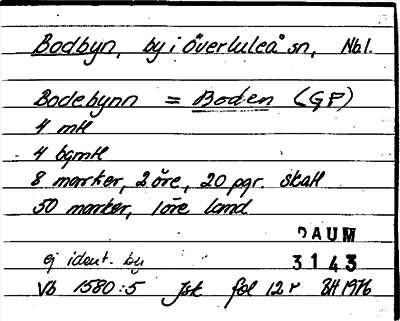 Bodbyn, by i Överluleå sn, Nbl.
Bodebynn = Boden (GF)
4 mtl
4 bgmtl
8 marker, 2 öre, 20 pgr. skatt
50 marker, 1 öre land
DAUM
ej ident. by 3143
Vb 1580:5 Jsk fol 12 r BH 1976